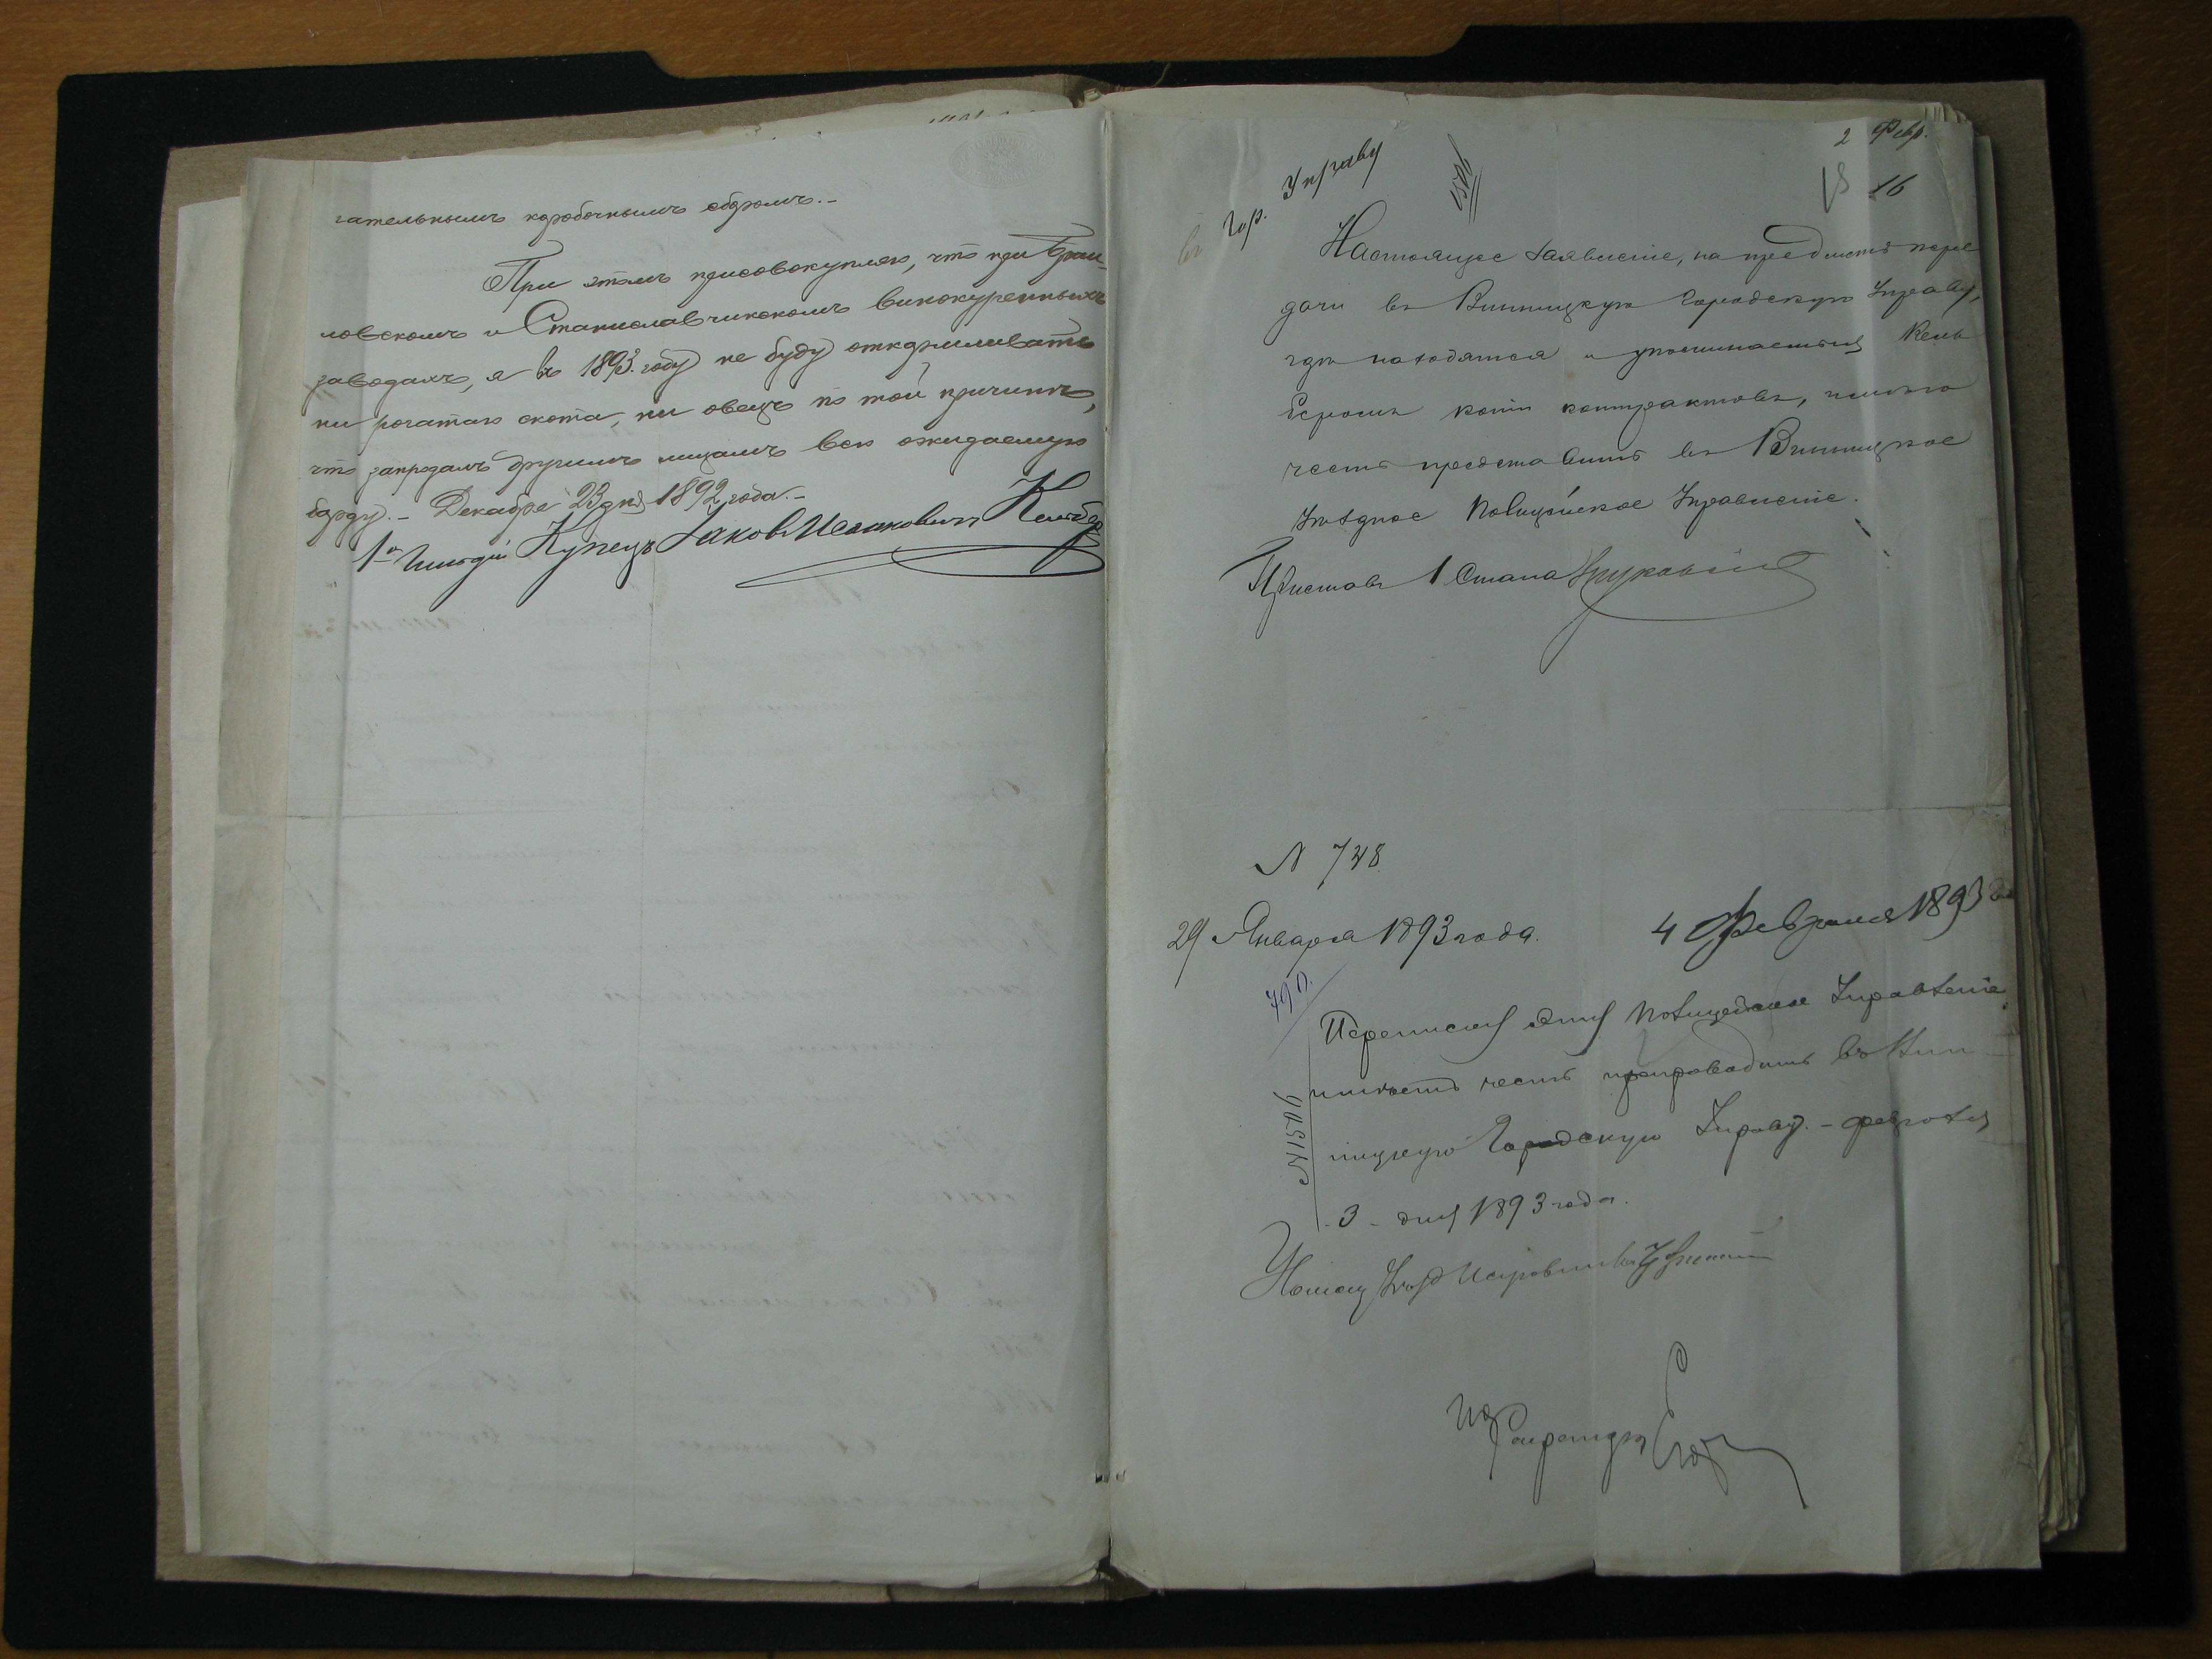 гательнымъ коробочнымъ сборомъ.-
При этомъ присовокупляю, что при Браи-
ловскомъ и Станиславчикскомъ винокуренныхъ
заводахъ, я въ 1893. году не буду откармливать
ни рогатаго скота, ни овецъ по той причинѣ,
что запродалъ другимъ лицамъ всю ожидаемую
барду.- Декабря 23 дня 1892 года.-
1й Гильдіи Купецъ Яковъ Исааковичъ
2 Февр.
въ Гор. Управу
16
Настоящее заявленіе, на предметъ пере
дачи въ Винницкую Городскую Управу,
гдѣ находятся и упоминаемыя
копіи контрактовъ, имѣю
честь представить въ Винницкое
Уѣздное Полицейское Управленіе.
Приставъ 1 Стана
N 748
29 Января 1893 года.
4 Февраля 1893
790.
Переписку эту Полицейское Управленіе
имѣетъ честь препроводить въ Вин-
ницкую Городскую Управу.- Февраля
-3- дня 1893 года.
№ 1570
Помощ Уѣзд Исправника
Секретарь